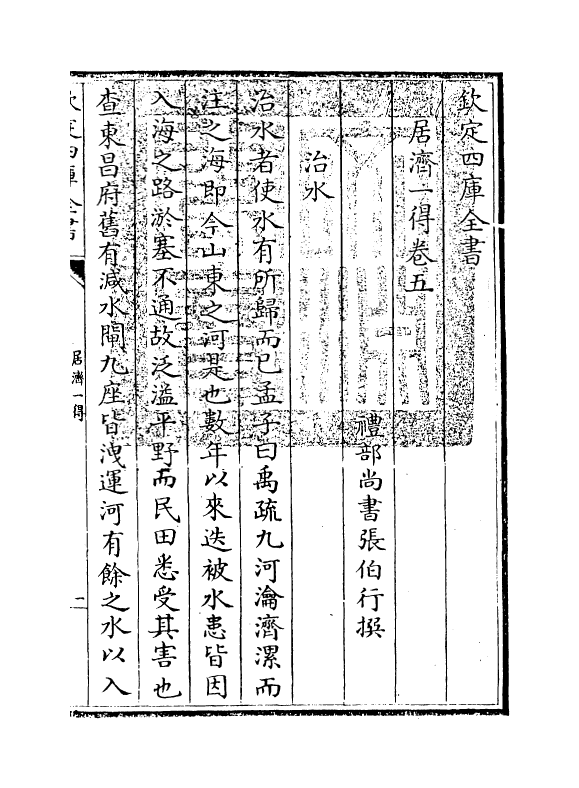 欽定四庫全書
居濟一得卷五
禮部尚書張伯行撰
治水
治水者使水有所歸而已孟子曰禹疏九河瀹濟漯而
注之海即今山東之河是也數年以來迭被水患皆因
入海之路淤塞不通故泛溢平野而民田悉受其害也
查東昌府舊有減水閘九座皆洩運河有餘之水以入
欽定四庫全書
居濟一得